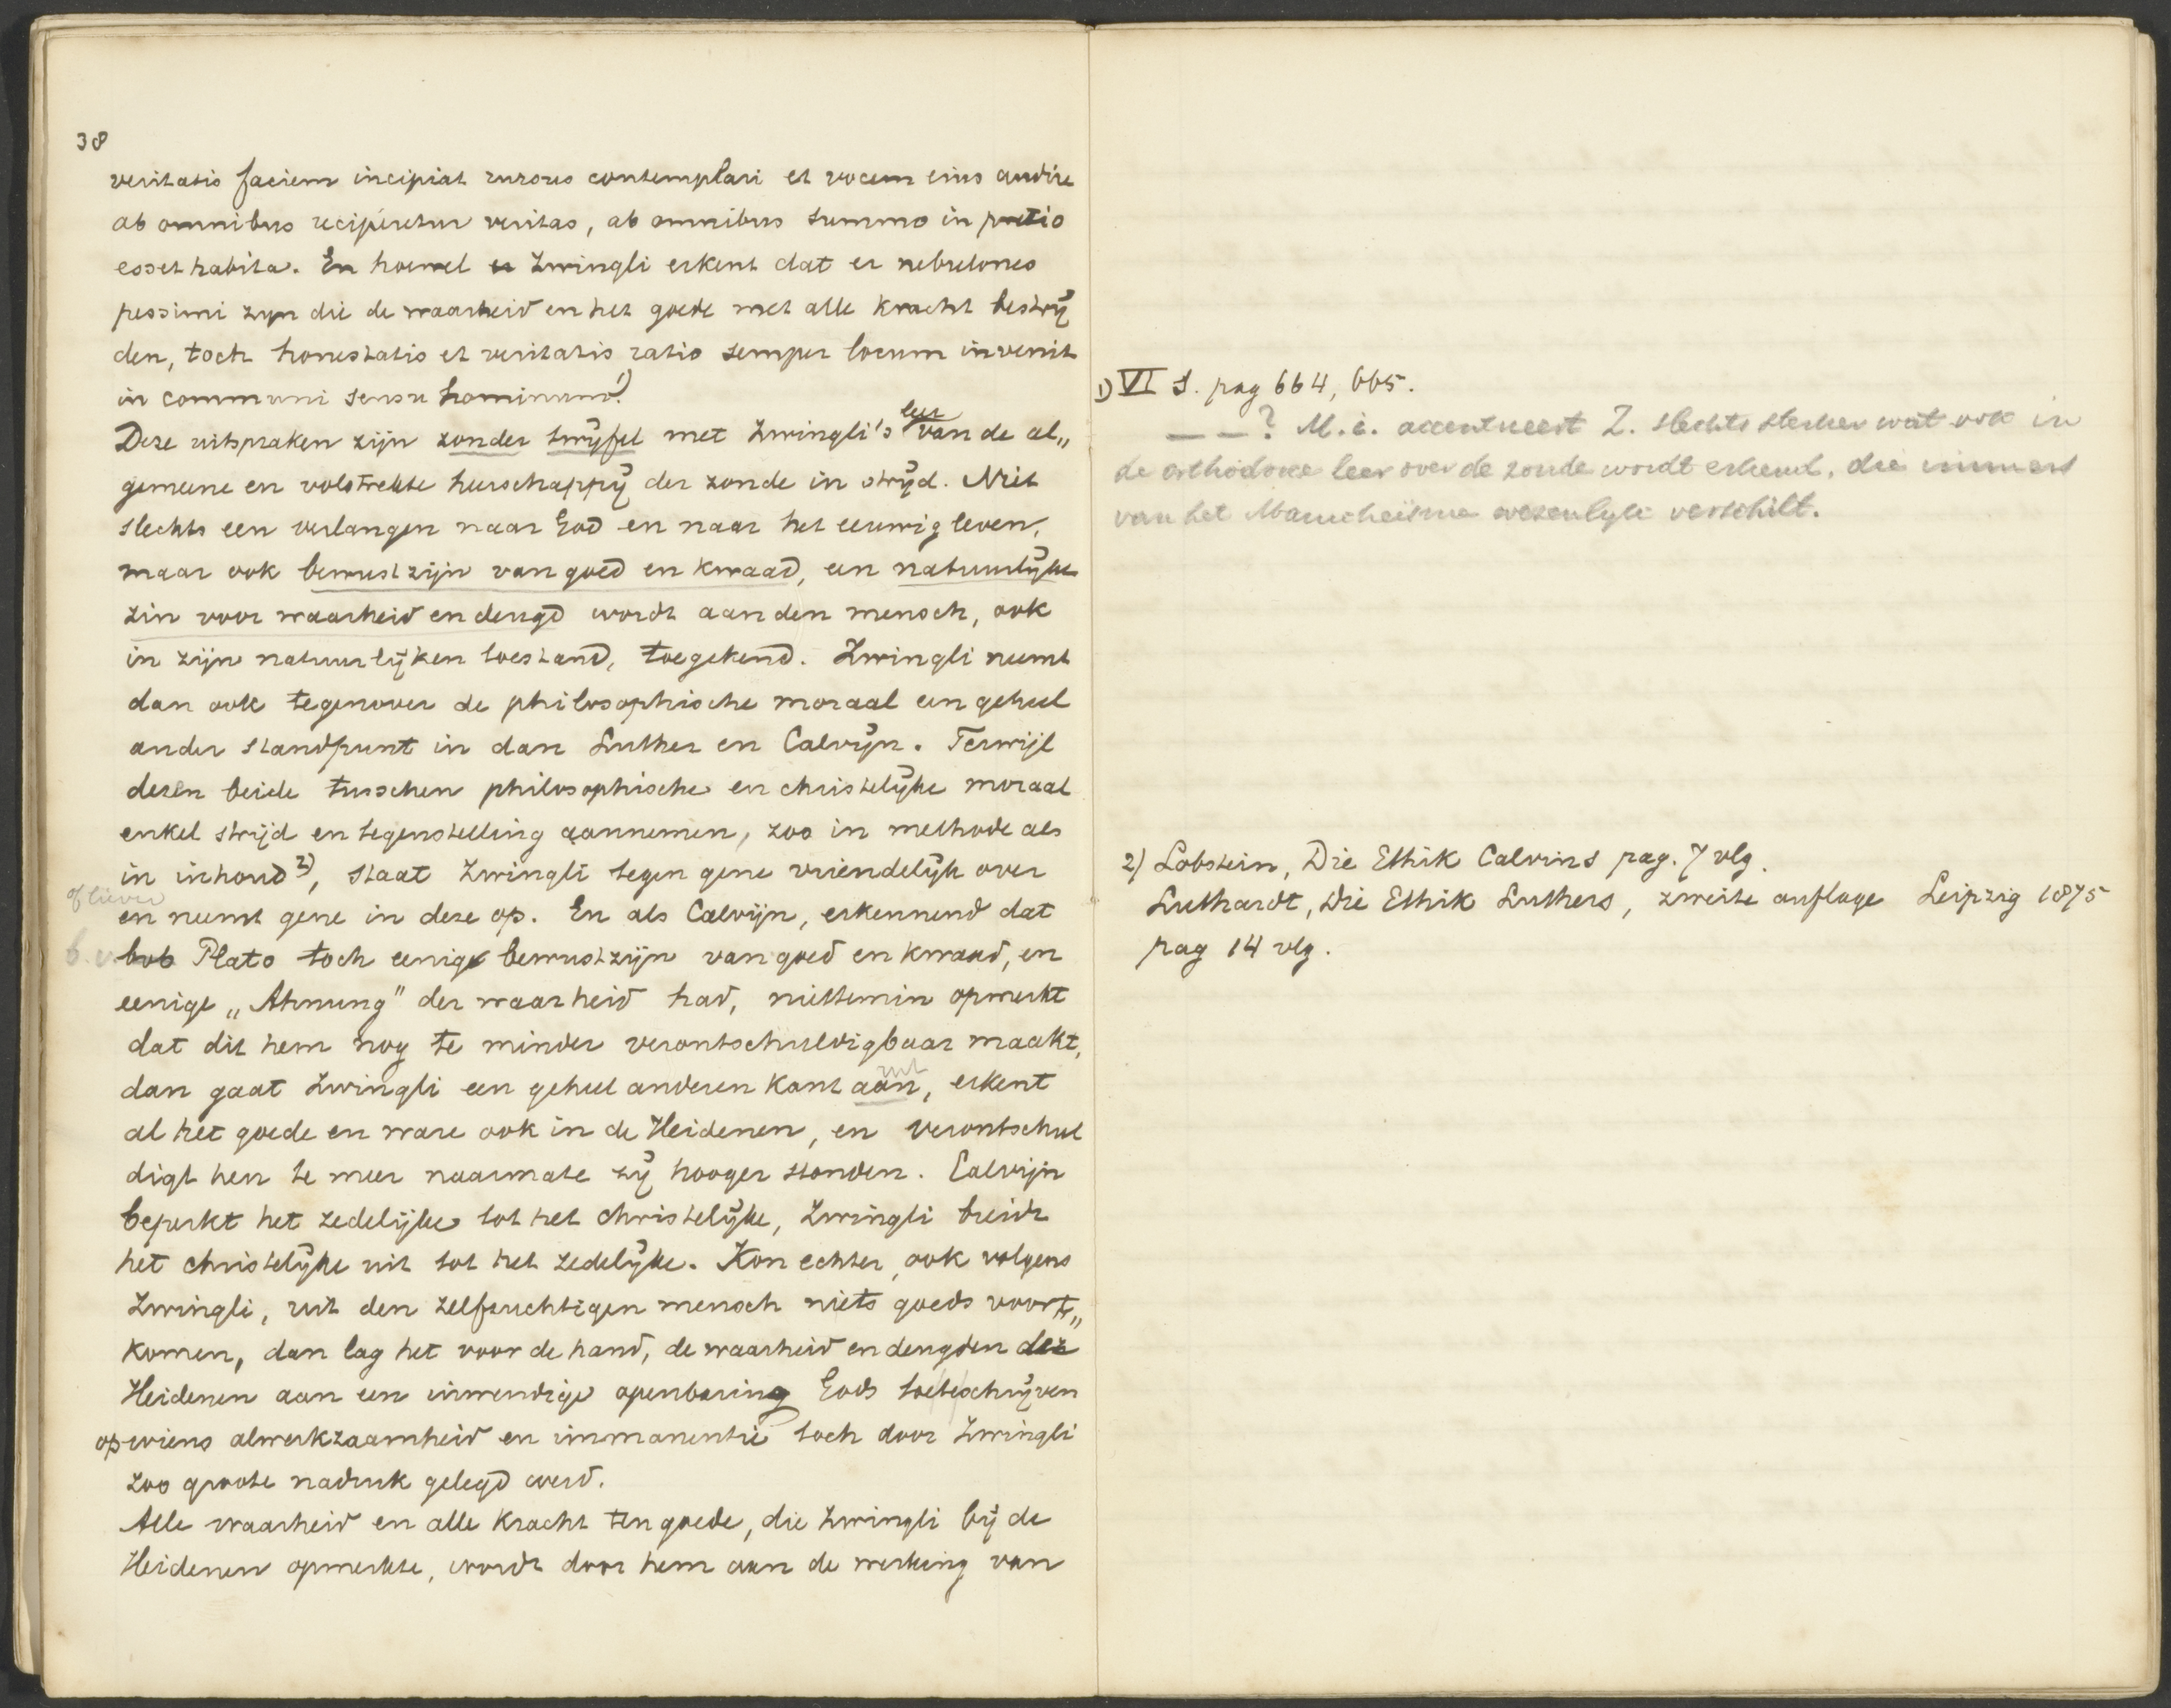 38
veritatis faciem incipiat rursus contemplari et vocem eius audire
ab omnibus reciperetur veritas, ab omnibus summo in pretio
esset habita. En hoewel Zwingli erkent dat er nebulones
pessimi zyn die de waarheid en het goede met alle kracht bestrij
den, toch honestatis et veritatis ratio semper locum invenit
in communi sensu hominum. 1)
Deze uitspraken zijn zonder twijfel met Zwingli's leer van de al„
gemeene en volstrekte heerschappij der zonde in strijd. Niet
slechts een verlangen naar God en naar het eeuwig leven,
maar ook bewustzijn van goed en kwaad, een natuurlijke
zin voor waarheid en deugd wordt aan den mensch, ook
in zijn natuurlijken toestand, toegekend. Zwingli neemt
dan ook tegenover de philosophische moraal een geheel
ander standpunt in dan Luther en Calvijn. Terwijl
dezen beide tusschen philosophische en christelijke moraal
enkel strijd en tegenstelling aannemen, zoo in methode als
in inhoud 2), staat Zwingli tegen gene vriendelijk over
of liever
en neemt gene in deze op. En als Calvijn, erkennend dat
b.v. Plato toch eenig bewustzijn van goed en kwaad, en
eenige „Ahnung" der waarheid had, niettemin opmerkt
dat dit hem nog te minder verontschuldigbaar maakt,
dan gaat Zwingli een geheel anderen kant aan, uit erkent
al het goede en ware ook in de Heidenen, en verontschul
digt hen te meer naarmate zij hooger stonden. Calvijn
beperkt het zedelijke tot het christelijke, Zwingli breidt
het christelijke uit tot het zedelijke. Kon echter, ook volgens
Zwingli, uit den zelfzuchtigen mensch niets goeds voort„
komen, dan lag het voor de hand, de waarheid en deugden der
Heidenen aan een inwendige openbaring Gods toeteschrijven
op wiens alwerkzaamheid en immanentie toch door Zwingli
zoo groote nadruk gelegd werd.
Alle waarheid en alle kracht ten goede, die Zwingli bij de
Heidenen opmerkte, wordt door hem aan de werking van
1) VI S. pag 664, 665.
— —? M.i. accentueert Z. slechts sterker wat ook in
de orthodoxe leer over de zonde wordt erkend, die immers
van het Manicheïsme wezenlijk verschilt.
2) Lobstein, Die Ethik Calvins pag. 7 vlg.
Luthardt, Die Ethik Luthers, zweite auflage Leipzig 1875
pag 14 vlg.